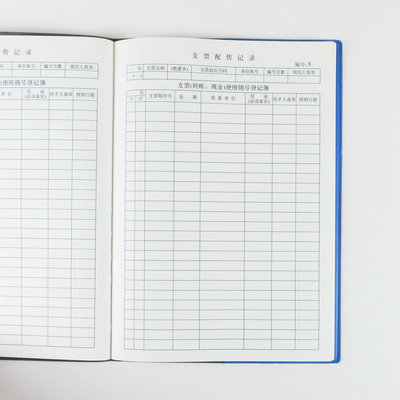 配售记录
单位账号 编号页数 领用人签章
)使用销号登记簿
单位 用途(必须真实) 经手人盖章 核销日期
支票配售记录
编号:
年 支票名称 (数量本) 支票起讫号码 单位账号 编号页数 领用人签章
月 日
支票(转帐、现金)使用销号登记簿
年 支票顺序号 金额 收款单位 用途(必须真实) 经手人盖章 核销日期
月 日